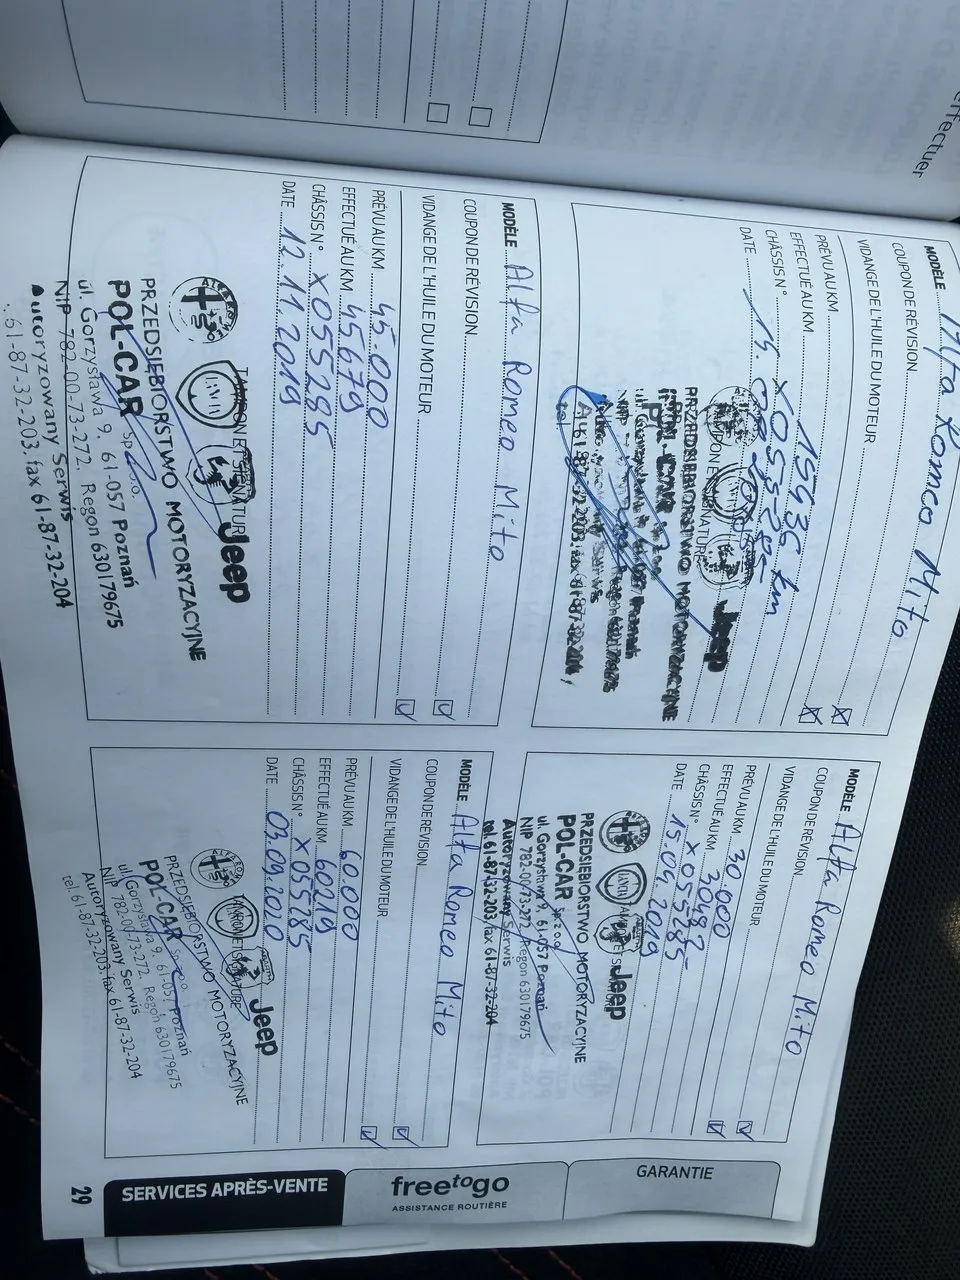 effectuer
MODÈLE Alfa Romeo Mito
COUPON DE RÉVISION
VIDANGE DE L'HUILE DU MOTEUR
PRÉVU AU KM
EFFECTUÉ AU KM 15935 km
CHÂSSIS N° X055285
DATE
TAMPON ET SIGNATURE
Jeep
PRZEDSIĘBIORSTWO MOTORYZACYJNE
POL-CAR
MODÈLE Alfa Romeo Mito
COUPON DE RÉVISION
VIDANGE DE L'HUILE DU MOTEUR
PRÉVU AU KM 30.000
EFFECTUÉ AU KM 30492
CHÂSSIS N° X055285
DATE 15.04.2019
Jeep
PRZEDSIĘBIORSTWO MOTORYZACYJNE
POL-CAR sp. z o.o.
ul. Gorzysława 9, 61-057 Poznań
NIP 782-00-73-272, Regon 630179675
Autoryzowany Serwis
tel. 61-87-32-203, fax 61-87-32-204
MODÈLE Alfa Romeo Mito
COUPON DE RÉVISION
VIDANGE DE L'HUILE DU MOTEUR
PRÉVU AU KM 45.000
EFFECTUÉ AU KM 45679
CHÂSSIS N° X055285
DATE 12.11.2019
TAMPON ET SIGNATURE
Jeep
PRZEDSIĘBIORSTWO MOTORYZACYJNE
POL-CAR sp. z o.o.
ul. Gorzysława 9, 61-057 Poznań
NIP 782-00-73-272, Regon 630179675
Autoryzowany Serwis
61-87-32-203, fax 61-87-32-204
MODÈLE Alfa Romeo Mito
COUPON DE RÉVISION
VIDANGE DE L'HUILE DU MOTEUR
PRÉVU AU KM 60.000
EFFECTUÉ AU KM 60219
CHÂSSIS N° X055285
DATE 03.09.2020
TAMPON ET SIGNATURE
Jeep
PRZEDSIĘBIORSTWO MOTORYZACYJNE
POL-CAR sp. z o.o.
ul. Gorzysława 9, 61-057 Poznań
NIP 782-00-73-272, Regon 630179675
Autoryzowany Serwis
tel. 61-87-32-203, fax 61-87-32-204
GARANTIE
freetogo
ASSISTANCE ROUTIÈRE
SERVICES APRÈS-VENTE
29